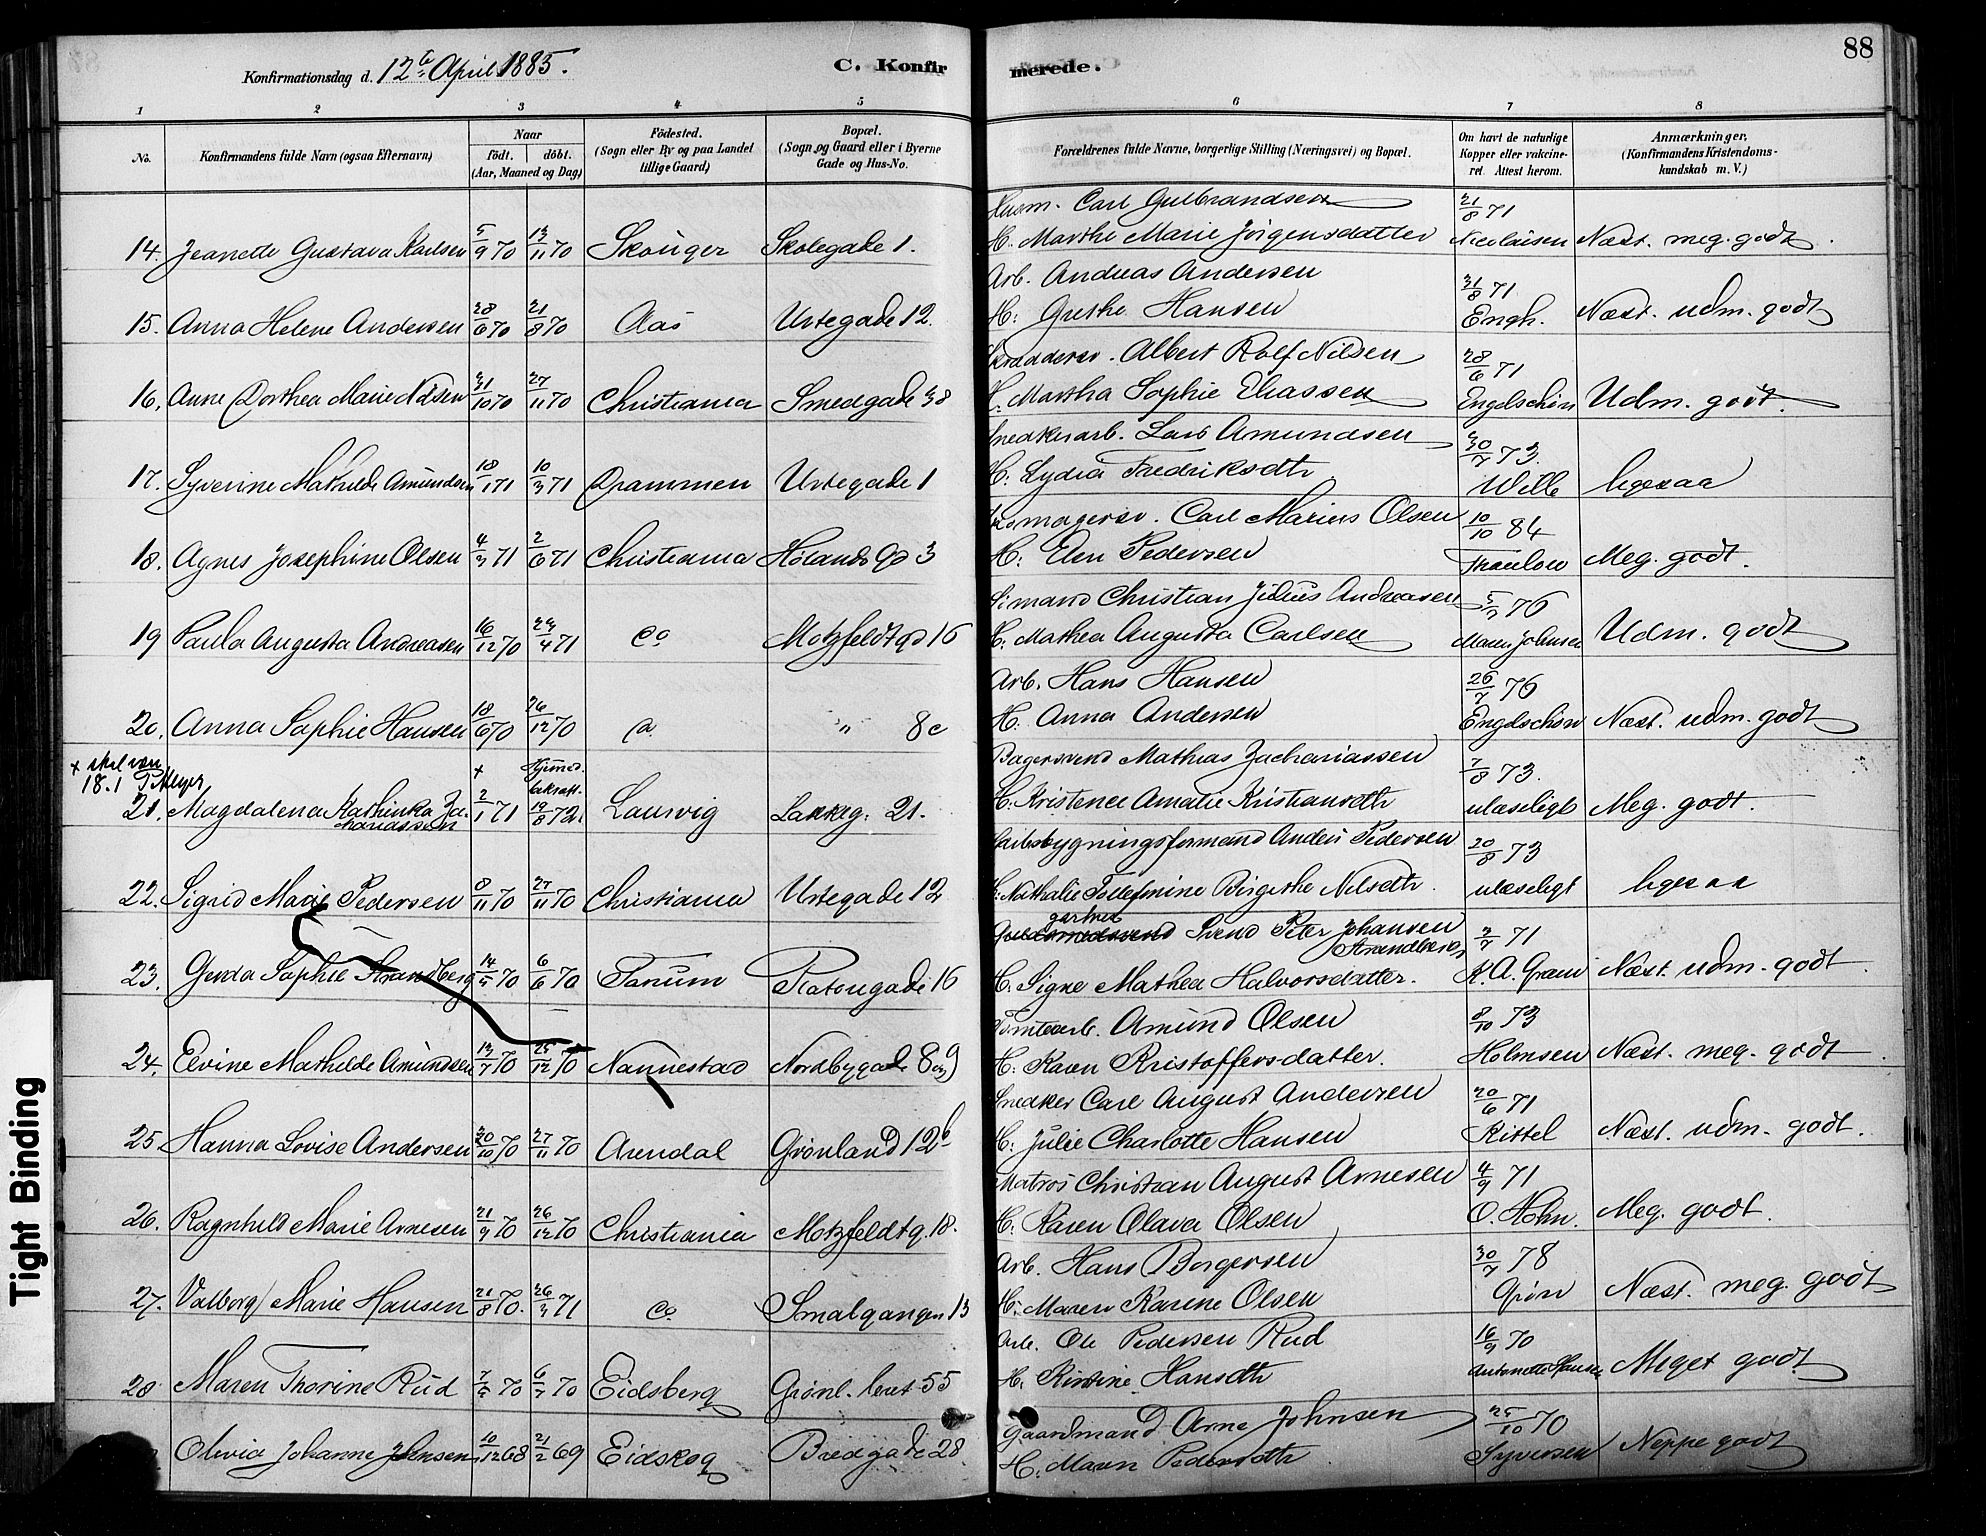 88
Konfirmationsdag d. 12te April 1885.
C. Konfirmerede.
1 2 3 4 5 6 7 8
No. Konfirmandens fulde Navn (ogsaa Efternavn) Naar födt. döbt. (Aar, Maaned og Dag) Födested. (Sogn eller By og paa Landet tillige Gaard) Bopæl. (Sogn og Gaard eller i Byerne Gade og Hus-No. Forældrenes fulde Navne, borgerlige Stilling (Næringsvei) og Bopæl. Om havt de naturlige Kopper eller vakcineret. Attest herom. Anmærkninger. (Konfirmandens Kristendomskundskab m. V.)
Husm. Carl Gulbrandsen 21/8 71
14. Jeanette Gustava Karlsen 5/9 70 13/11 70 Skouger Skolegade 1. H. Marthe Marie Jörgensdatter Nicolaisen Næst. meg. godt.
Arb. Andreas Andersen 31/8 71
15. Anna Helene Andersen 28/6 70 21/8 70 Aas Urtegade 12. H. Grethe Hansen Engh. Næst. udm. godt
Skrædersv. Albert Rolf Nilsen 28/6 71
16. Anne Dorthea Marie Nilsen 31/10 70 27/11 70 Christiania Smedgade 38 H. Martha Sophie Eliassen Engelschiøn Udm. godt.
Snedkerarb. Lars Amundsen 30/7 73.
17. Syverine Mathilde Amundsen 18/1 71 10/3 71 Drammen Urtegade 1 H. Lydia Fredriksdtr Wille ligesaa
Skomagersv. Carl Marius Olsen 10/10 84
18. Agnes Josephine Olsen 4/3 71 2/6 71 Christiania Hølands Gd 3 H. Elen Pedersen Thaulow Meg. godt.
Sömand Christian Julius Andreasen 5/7 76
19 Paula Augusta Andreasen 16/12 70 23/4 71 do Motzfeldtgd 16 H. Mathea Augusta Carlsen Maren Johnsen Udm. godt
Arb. Hans Hansen 26/7 76
20. Anna Sophie Hansen 18/6 70 26/12 70 do " 8c H. Anna Andersen Engelschiøn Næst. udm. godt
+ skal være 18.1 Bagersvend Mathias Zachariassen 7/8 73.
21. Magdalena Kathinka Zachariassen + 2/1 71 Hjemmed. bekræft. 19/8 72 Laurvig Lakkeg. 21. H. Kristence Amalie Kristiansdtr ulæseligt Meg. godt.
Skibsbygningsformand Anders Pedersen 20/8 73
22. Sigrid Marie Pedersen 8/11 70 27/11 70 Christiania Urtegade 12 H. Nathalie Tollefmine Birgithe Nilsdtr. ulæseligt ligesaa
Guldsmedsvend gartner Svend Peter Johansen Strandberg 3/7 71
23. Gerda Sophie Strandberg 14/5 70 6/6 70 Tanum Platougade 16 H. Signe Mathea Halvorsdatter. K. A. Gram Næst. udm. godt.
Tomtearb. Amund Olsen 8/10 73
24. Elvine Mathilde Amundsen 13/7 70 25/12 70 Nannestad Nordbygade 8 og 9 H. Karen Kristoffersdatter. Holmsen Næst. meg. godt.
Snedker Carl August Andersen 20/6 71
25. Hanna Lovise Andersen 20/10 70 27/11 70 Arendal Grönland 12b H. Julie Charlotte Hansen Kittel Næst. udm. godt.
Matros Christian August Arnesen 4/9 71
26. Ragnhild Marie Arnesen 21/9 70 26/12 70 Christiania Motzfeldtg. 18. H. Karen Olava Olsen O. Holm. Meg. godt.
Arb. Hans Borgersen 30/7 78
27. Valborg Marie Hansen 21/8 70. 26/3 71 do Smalgangen 13 H. Maren Karine Olsen Grön Næst. meg. godt
Arb. Ole Pedersen Rud 16/9 70
28 Maren Thorine Rud 7/5 70 6/7 70 Eidsberg Grönl. leret 55 H. Kirstine Hansdtr Antonette Hansen Meget godt
Gaardmand Arne Johnsen 25/10 70
Olivia Johanne Johnsen 10/12 68 21/2 69 Eidskog Bredgade 28. H. Maren Pedersdtr Syversen Neppe godt
Tight Binding